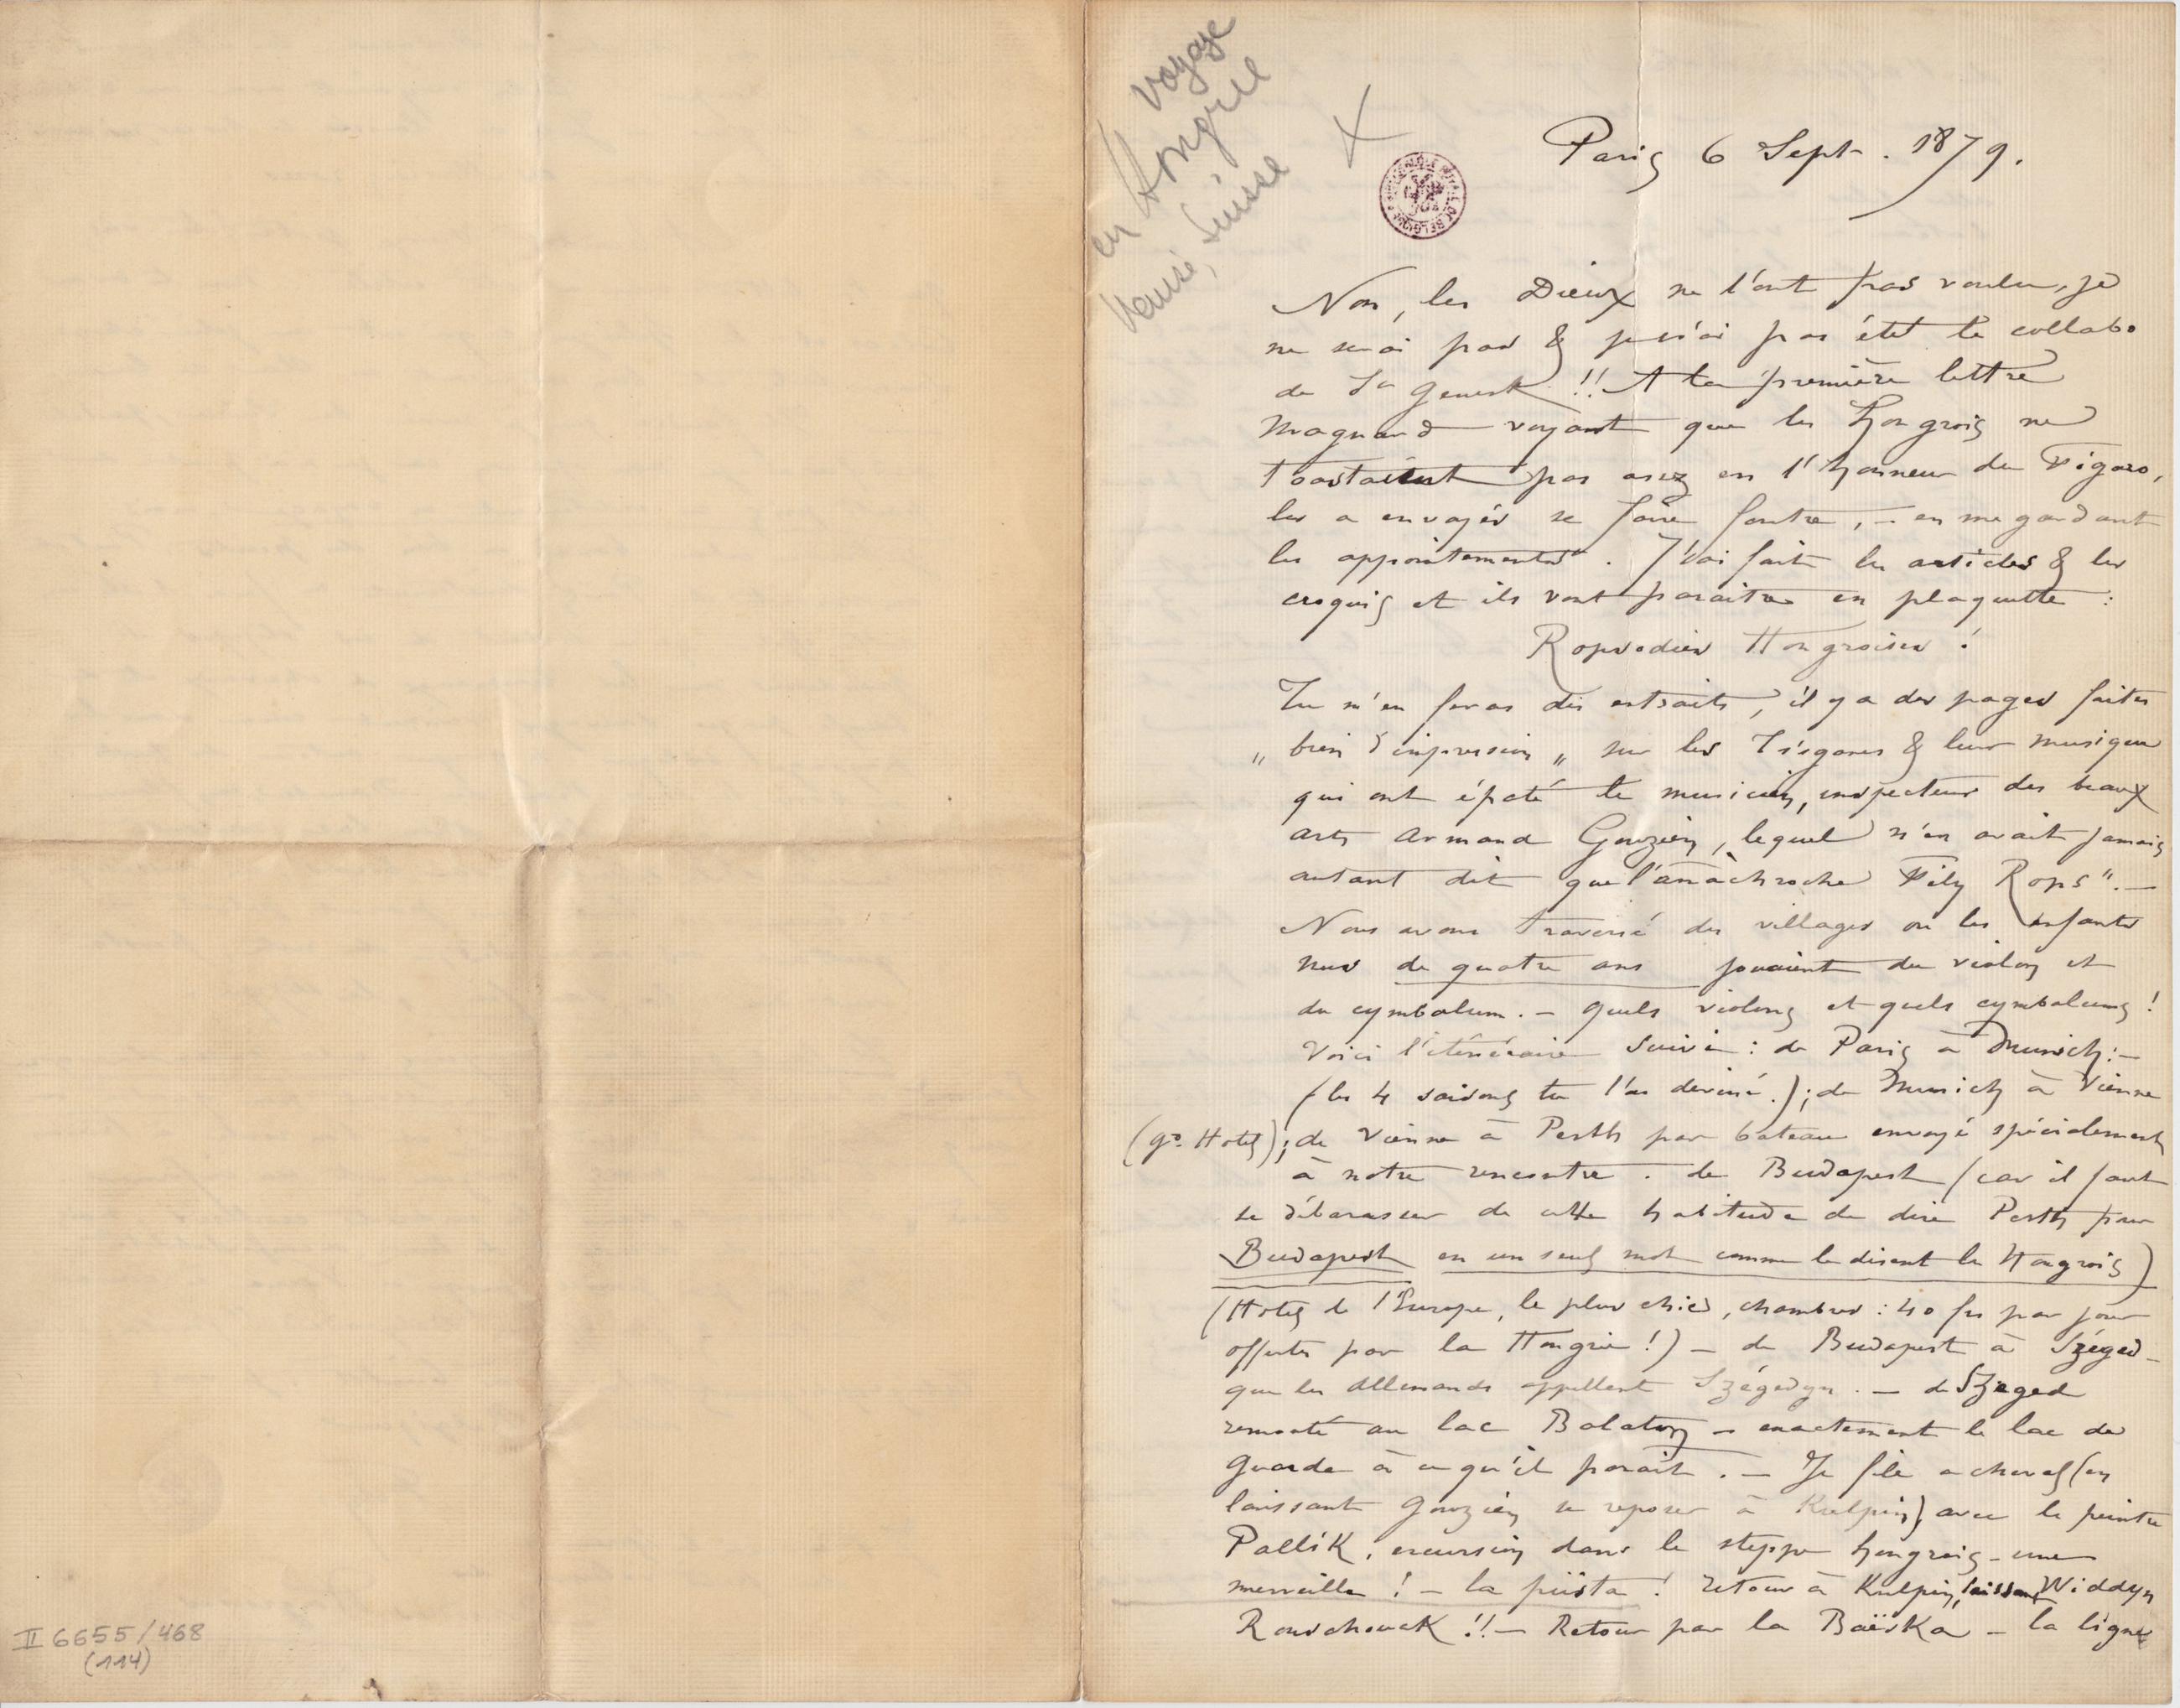 Voyage
en Hongrie
Venise, Suisse
X
Paris 6 Sept. 1879.
Non, les Dieux ne l'ont pas voulu, je
ne serai pas & je n'ai pas étét le collabo
de St Genest !! A la première lettre
Magnard voyant que les Hongrois ne
toastaient pas assez en l'honneur du Figaro,
les a envoyés se faire foutre, – en me gardant
les appointements. J'ai fait les articles & les
croquis et ils vont paraitre en plaquette :
Ropsodies Hongroises !
Tu m'en feras des extraits, il y a des pages faites
„ bien d'impression „ sur les Tsiganes & leur musique
qui ont épaté le musicien, inspecteur des beaux
arts Armand Gouzien, lequel n'en avait jamais
autant dit que Fély Rops". –
Nous avons traversé des villages ou les enfants
nus de quatre ans jouaient du violon et
du cymbalum. – quels violons et quels cymbalums !
Voici l'itinéraire suivi : de Paris à Munich :–
(les 4 saisons tu l'as deviné.) ; de Munich à Vienne
(gd Hotel) ; de Vienne à Pesth par bateau envoyé spécialement
à notre rencontre . de Budapest (car il faut
se débarasser de cette habitude de dire Pesth pour
Budapest en un seul mot comme le disent les Hongrois)
(Hotel de l'Europe, le plus chic, chambres : 40 frs par jour
offertes par la Hongrie !) – de Budapest à Széged –
que les Allemands appellent Szégedyn. – de Szeged
remonté au lac Balaton – exactement le lac de
Guarde à ce qu'il parait. – Je file a cheval (en
laissant Gouzien se reposer à Kulpin) avec le peintre
Pallik, excursion dans le steppe hongrois – une
merveille ! – la püsta ! retour à Kulpin, Widdyn
Rouschouck !! – Retour par la Baëska – la ligne
II 6655/468
(114)